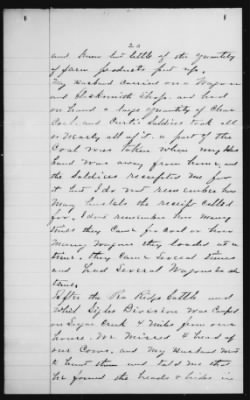 20
and knew but little of the quantity
of farm products put up.
My husband carried on a Wagon
and Blacksmith Shop. and had
on hand a large quantity of Char
Coal. and Curtis Soldiers took all
or nearly all of it. a part of the
Coal was taken when my Hus
band was away from home, and
the Soldiers receipted me for
it but I do not remember how
many bushels the receipt called
for. I dont remember how many
times they came for coal or how
many wagons they loaded at a
time. they came several times
and had several Wagons each
time.
After the Pea Ridge battle and
whilst Sigles Division was Camped
on Sugar Creek 4 miles from our
house. We missed 4 head of
our Cows. and my Husband went
to hunt them and told me that
he found the heads & hides in